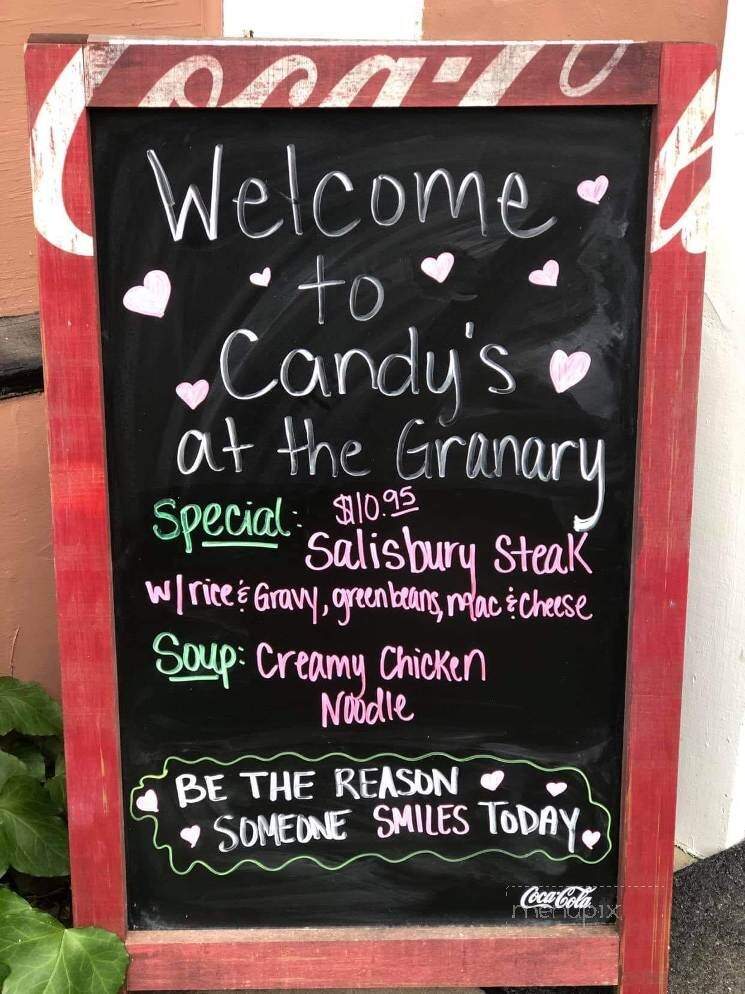 Coca-Cola
Welcome
to
Candy's
at the Granary
Special: $10.95
Salisbury Steak
w/ rice & Gravy, green beans, mac & cheese
Soup: Creamy Chicken
Noodle
BE THE REASON
SOMEONE SMILES TODAY
Coca-Cola
menupix